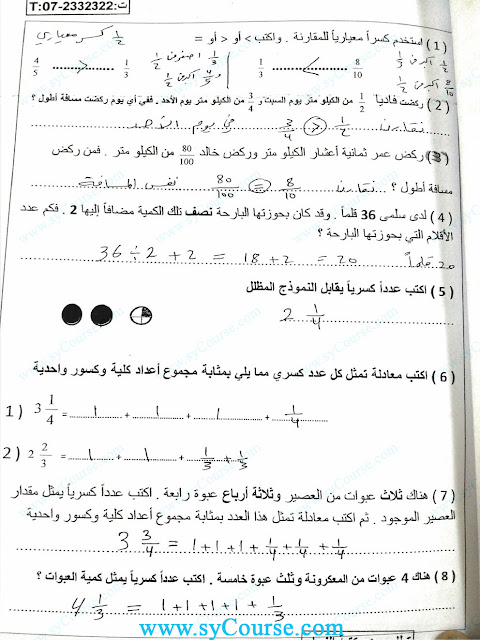 ت:T:07-2332322
( 1 ) استخدم كسراً معيارياً للمقارنة . واكتب > أو < أو = 1/2 كسر معياري
4/5 ....>.... 1/3 1/3 اصغر من 1/2 4/5 أكبر من 1/2
1/3 ....<.... 8/10 1/3 أكبر من 1/2 8/10 أكبر من 1/2
( 2 ) ركضت فاديا 1/2 من الكيلو متر يوم السبت و 3/4 من الكيلو متر يوم الأحد . ففي أي يوم ركضت مسافة أطول ؟
نقارن 1/2 < 3/4 في يوم الأحد
( 3 ) ركض عمر ثمانية أعشار الكيلو متر وركض خالد 80/100 من الكيلو متر . فمن ركض
مسافة أطول ؟ نقارن 8/10 = 80/100 نفس المسافة
( 4 ) لدى سلمى 36 قلماً . وقد كان بحوزتها البارحة نصف تلك الكمية مضافاً إليها 2 . فكم عدد
الأقلام التي بحوزتها البارحة ؟
36 ÷ 2 + 2 = 18 + 2 = 20 20 قلماً
( 5 ) اكتب عدداً كسرياً يقابل النموذج المظلل
2 1/4
( 6 ) اكتب معادلة تمثل كل عدد كسري مما يلي بمثابة مجموع أعداد كلية وكسور واحدية
1 ) 3 1/4 = 1 + 1 + 1 + 1/4
2 ) 2 2/3 = 1 + 1 + 1/3 + 1/3
( 7 ) هناك ثلاث عبوات من العصير وثلاثة أرباع عبوة رابعة . اكتب عدداً كسرياً يمثل مقدار
العصير الموجود . ثم اكتب معادلة تمثل هذا العدد بمثابة مجموع أعداد كلية وكسور واحدية
3 3/4 = 1 + 1 + 1 + 1/4 + 1/4 + 1/4
( 8 ) هناك 4 عبوات من المعكرونة وثلث عبوة خامسة . اكتب عدداً كسرياً يمثل كمية العبوات ؟
4 1/3 = 1 + 1 + 1 + 1 + 1/3
www.syCourse.com